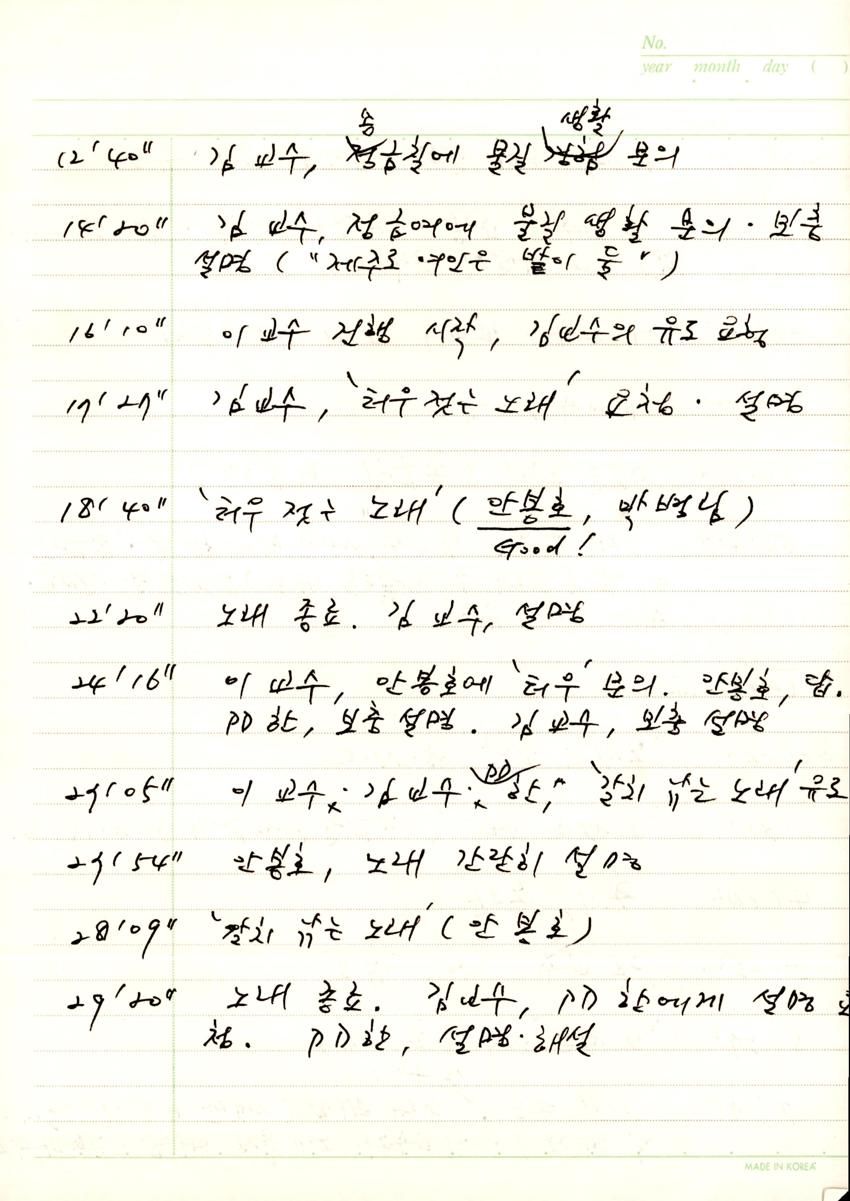 No.
year month day ( )
송 생활
12'40" 김 교수, 정금철에 물질 경험 문의
14'20" 김 교수, 정금여에 물질 생활 문의 · 보충
설명 ("제주로 여인은 발이 둘")
16'10" 이 교수 진행 시작, 김교수의 유도 요청
17'27" 김교수, '터우 젓는 노래' 요청 · 설명
18'40" '터우 젓는 노래' (안봉호, 박병남)
Good!
22'20" 노래 종료. 김 교수, 설명
24'16" 이 교수, 안봉호에 '터우' 문의. 안봉호, 답.
PD 한, 보충 설명. 김 교수, 보충 설명
27'05" 이 교수 · 김 교수 · PD 한, '갈치 낚는 노래' 유도
27'54" 안봉호, 노래 간단히 설명
28'09" '갈치 낚는 노래' (안봉호)
29'20" 노래 종료. 김교수, PD 한에게 설명 요
청. PD 한, 설명 · 해설
MADE IN KOREA